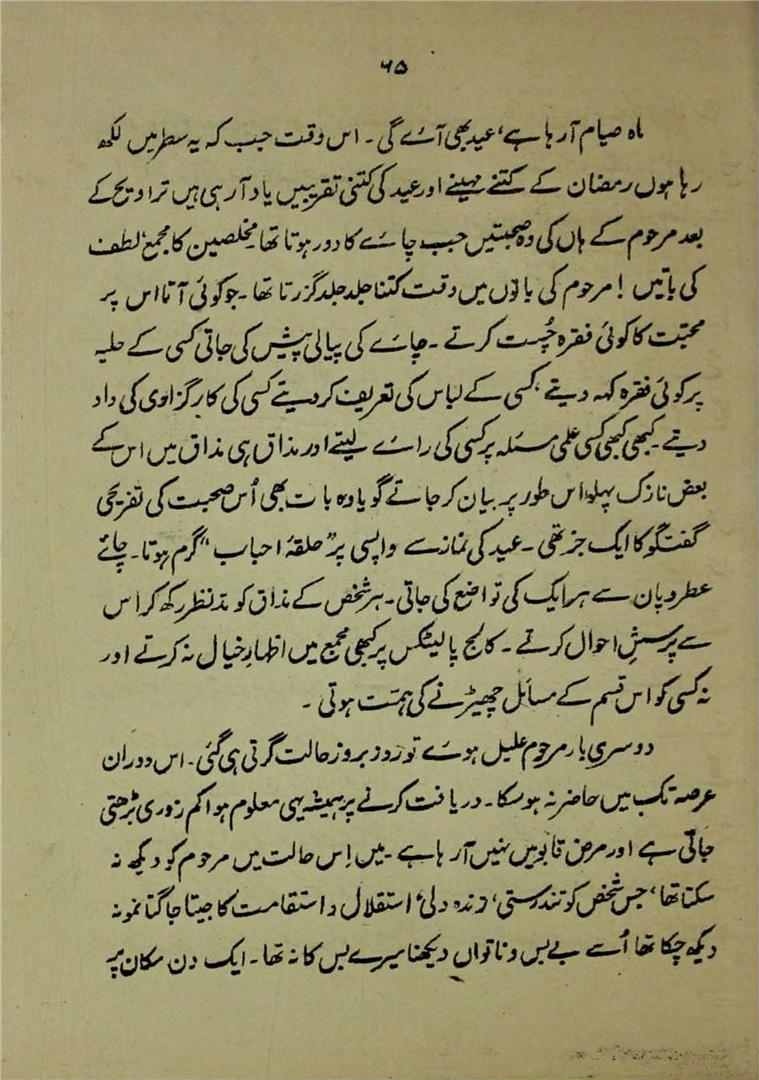 ۶۵
ماہ صیام آرہا ہے، عید بھی آئے گی۔ اس وقت جب کہ یہ سطریں لکھ
رہا ہوں رمضان کے کتنے مہینے اور عید کی کتنی تقریبیں یاد آرہی ہیں تراویح کے
بعد مرحوم کے ہاں کی وہ صحبتیں جب چائے کا دور ہوتا تھا۔ مخلصین کا مجمع، لطف
کی باتیں! مرحوم کی باتوں میں وقت کتنا جلد جلد گزرتا تھا۔ جو کوئی آتا اس پر
محبّت کا کوئی فقرہ چُست کرتے۔ چائے کی پیالی پیش کی جاتی کسی کے حلیہ
پر کوئی فقرہ کہہ دیتے، کسی کے لباس کی تعریف کردیتے کسی کی کارگزاری کی داد
دیتے۔ کبھی کبھی کسی علمی مسئلہ پر کسی کی رائے لیتے اور مذاق ہی مذاق میں اس کے
بعض نازک پہلو اس طور پر بیان کر جاتے گویا وہ بات بھی اُس صحبت کی تفریحی
گفتگو کا ایک جز تھی۔ عید کی نماز سے واپسی پر "حلقۂ احباب" گرم ہوتا۔ چائے
عطر و پان سے ہر ایک کی تواضع کی جاتی۔ ہر شخص کے مذاق کو مدّنظر رکھ کر اس
سے پرسشِ احوال کرتے۔ کالج پالیٹکس پر کبھی مجمع میں اظہارِ خیال نہ کرتے اور
نہ کسی کو اس قسم کے مسائل چھیڑنے کی ہمّت ہوتی۔
دوسری بار مرحوم علیل ہوئے تو روز بروز حالت گرتی ہی گئی۔ اس دوران
عرصہ تک میں حاضر نہ ہوسکا۔ دریافت کرنے پر ہمیشہ یہی معلوم ہوا کمزوری بڑھتی
جاتی ہے اور مرض قابو میں نہیں آرہا ہے۔ میں اِس حالت میں مرحوم کو دیکھ نہ
سکتا تھا، جس شخص کو تندرستی، زندہ دلی، استقلال و استقامت کا جیتا جاگتا نمونہ
دیکھ چکا تھا اُسے بے بس و ناتواں دیکھنا میرے بس کا نہ تھا۔ ایک دن مکان پر